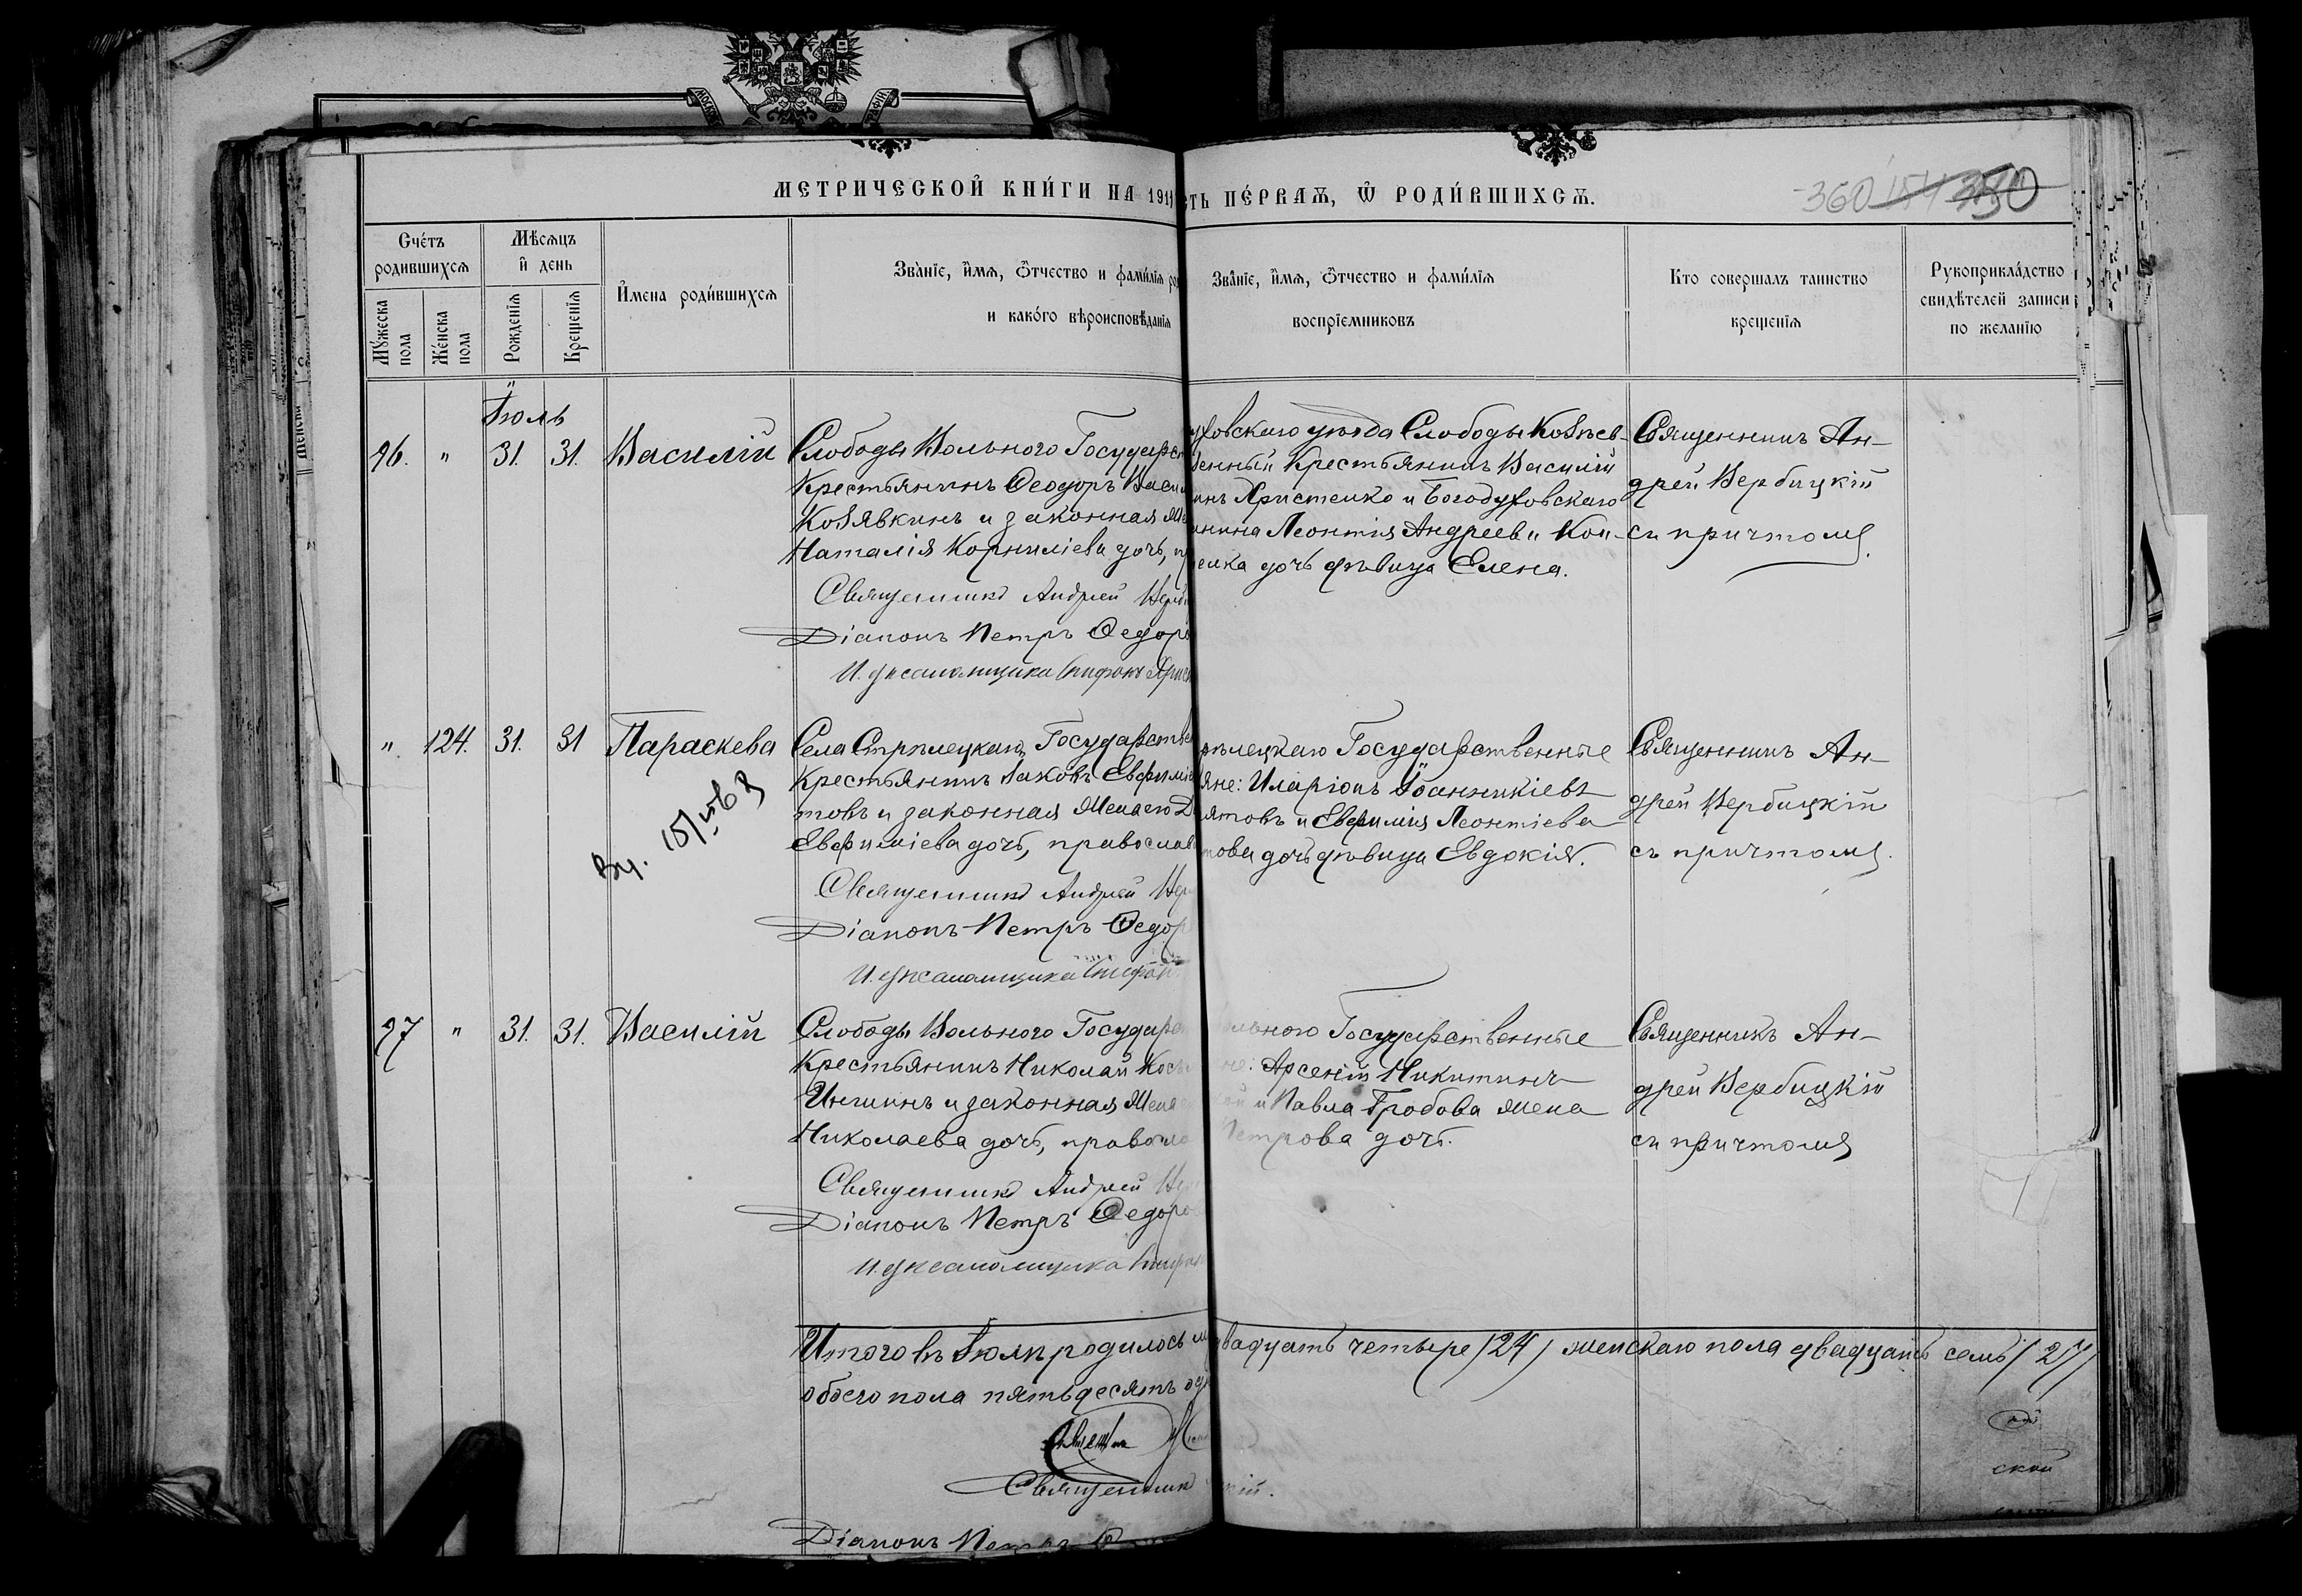 МЕТРИЧЕСКОЙ КНИ́ГИ НА 191
СТЬ ПЕ́РВАѦ, Ѿ РОДИ́ВШИХСѦ.
360 154 350
Счётъ родившихсѧ
Мѣсѧцъ и день
Мꙋ́жеска пола
Же́нска пола
Рожденїѧ
Крещенїѧ
И҆мена роди́вшихсѧ
Зва́нїе, и҆мѧ, ѻ҆тчество и фами́лїѧ ро
и како́го вѣроисповѣ́данїѧ
Зва́нїе, и҆мѧ, ѻ҆тчество и фами́лїѧ
воспрїемниковъ
Кто совершалъ таинство
крещенїѧ
Рукоприкла́дство
свидѣтелей записи
по желанїю
Іюль
96. " 31. 31. Василій
Слободы Вольного Государст
Крестьянинъ Ѳеодоръ Васи
Козявкинъ и законная же
Наталія Корниліева дочь, пр
Священникъ Андрей Верби
Діаконъ Петръ Ѳедоро
И. д. псаломщика Стифанъ Христ
уховскаго уѣзда Слободы Козѣев-
венный Крестьянинъ Василій
инъ Христенко и Богодуховскаго
янина Леонтія Андреева Кон-
енка дочь дѣвица Елена.
Священникъ Ан-
дрей Вербицкій
съ причтомъ.
" 124. 31. 31 Параскева
Село Стрѣлецкаго, Государстве
Крестьянинъ Іаковъ Евфиміе
товъ и законная жена его Д
Евфиміева дочь, православ
Священникъ Андрей Вер
Діаконъ Петръ Ѳедор
И. д. псаломщика Стифан
ѣлецкаго Государственные
яне: Иларіонъ Іоанникіевъ
лятовъ и Евфимія Леонтіева
това дочь дѣвица Евдокія.
Священникъ Ан-
дрей Вербицкій
съ причтомъ.
97 " 31. 31. Василій
Слободы Вольного Государс
Крестьянинъ Николай Косьм
и законная жена е
Николаева дочь, правосла
Священникъ Андрей Ве
Діаконъ Петръ Ѳедоро
И. д. псаломщика Стифан
ольного Государственные
не: Арсеній Никитинъ
и Павла Гробова жена
Петрова дочь.
Священникъ Ан-
дрей Вербицкій
съ причтомъ
Итого въ Іюлѣ родилось м
двадцать четыре /24/ женскаго пола двадцать семь /27/
обоего пола пятьдесятъ од
Священник
кій.
Діаконъ Петръ Ѳ
ской